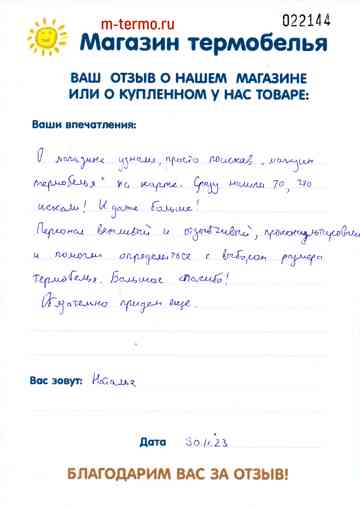 m-termo.ru
022144
Магазин термобелья
ВАШ ОТЗЫВ О НАШЕМ МАГАЗИНЕ
ИЛИ О КУПЛЕННОМ У НАС ТОВАРЕ:
Ваши впечатления:
О магазине узнали, просто поискав „магазин
термобелья" на карте. Сразу нашли то, что
искали! И даже больше!
Персонал вежливый и отзывчивый, проконсультировали
и помогли определиться с выбором размера
термобелья. Большое спасибо!
Обязательно придем еще.
Вас зовут: Наталья
Дата 30.11.23
БЛАГОДАРИМ ВАС ЗА ОТЗЫВ!